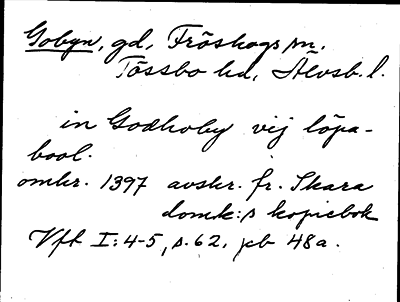 Gobyn, gd, Fröskogs sn.
Tössbo hd, Älvsb. l.
in Godhoby vij löpa-
bool.
omkr. 1397 avskr. fr. Skara
domk:s kopiebok
Vft I:4-5, s. 62. pb 48a.